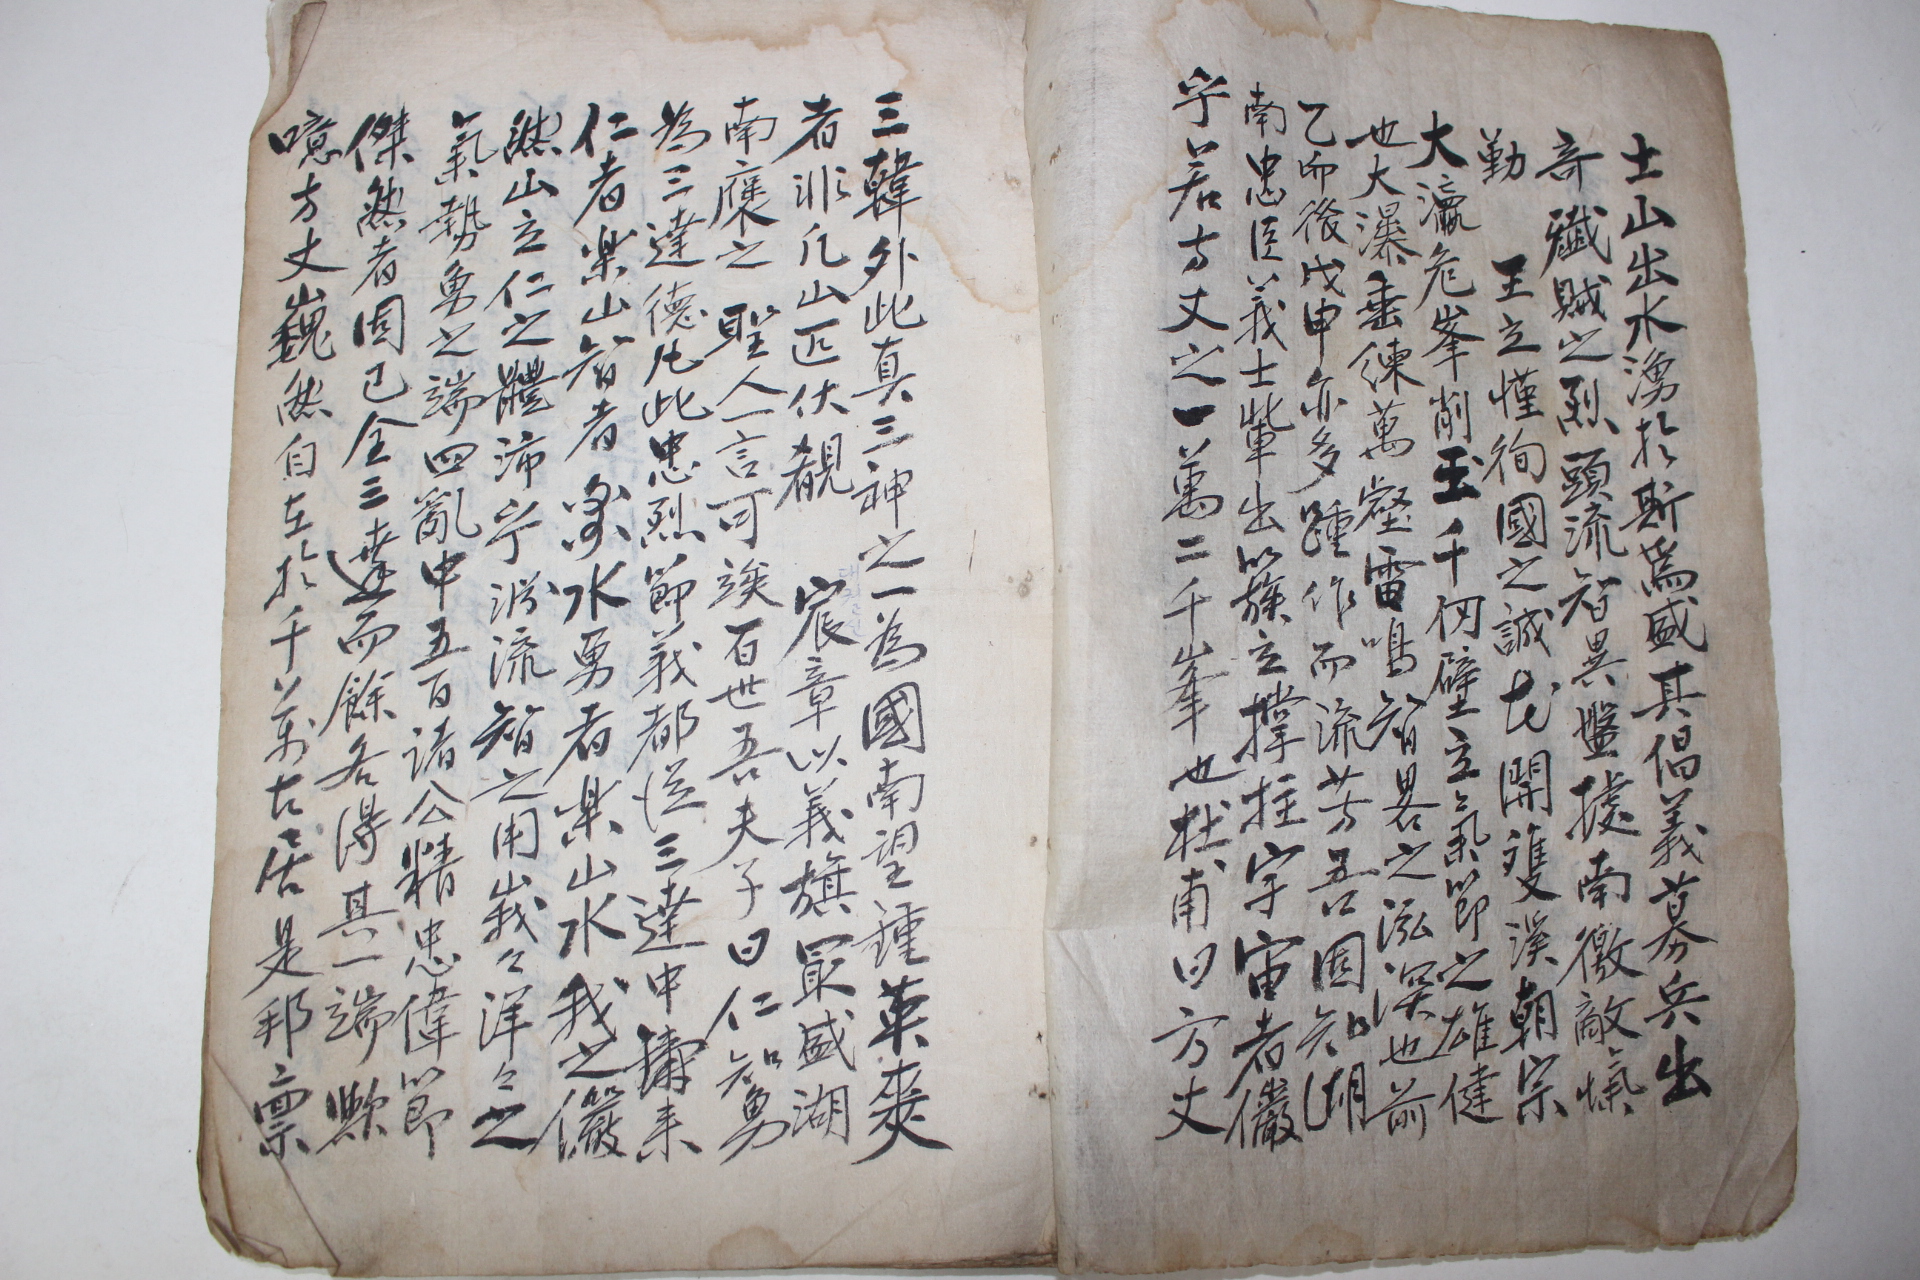 士山出水湧於斯爲盛其倡義募兵出
奇殲賊之烈頭流智異盤據南徼敵愾
勤　王立慬徇國之誠尤開雙溪朝宗
大瀛危峯削玉千仞壁立氣節之雄健
也大瀑垂練萬壑雷鳴智畧之泓深也前
乙卯後戊申亦多踵作而流芳吾固知湖
南忠臣義士輩出簇立撑拄宇宙者儼
乎若方丈之一萬二千峯也杜甫曰方丈
三韓外此真三神之一為國南望鍾英爽
者非凡山匹伏覩　宸章以義旗最盛湖
南褒之　聖人一言可竢百世吾夫子曰仁知勇
為三達德凡此忠烈節義都從三達中擩来
仁者楽山智者樂水勇者楽山水我之儼
然山立仁之體沛乎淵流智之用峩々洋々之
氣勢勇之端四亂中五百諸公精忠偉節
傑然者固已全三達而餘各得其一端歟
噫方丈山巍然自在於千萬古居是邦禀